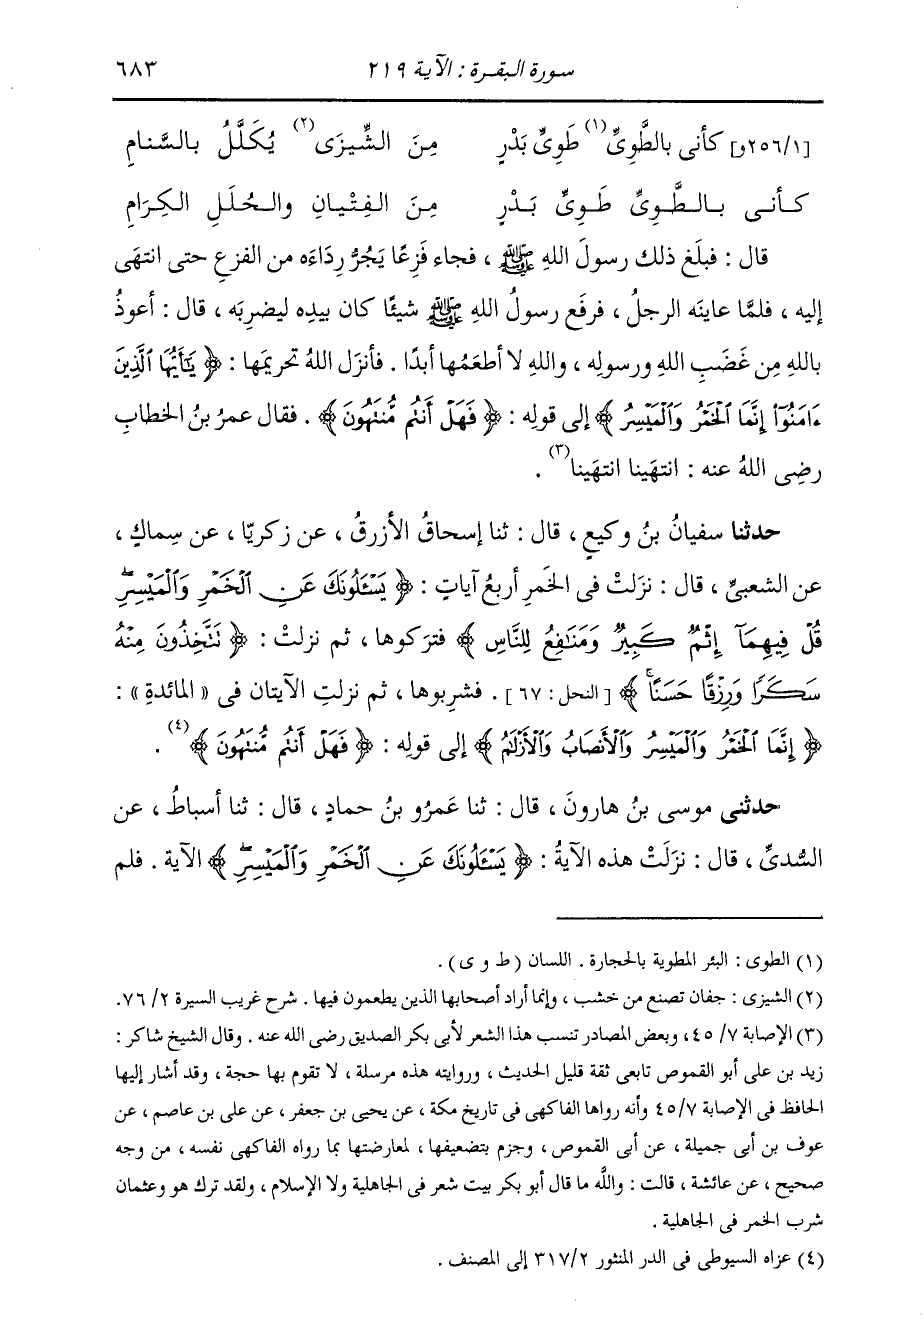 سورة البقرة : الآية ٢١٩ ٦٨٣
[٢٥٦/١و] كأنى بالطَّوِىِّ(١) طَوِىِّ بَدْرٍ مِنَ الشِّيزَى(٢) يُكَلَّلُ بالسَّنامِ
كأنى بالطَّوِىِّ طَوِىِّ بَدْرٍ مِنَ الفِتْيانِ والحُلَلِ الكِرَامِ
قال : فبلَغ ذلك رسولَ اللهِ ﷺ ، فجاء فَزِعًا يَجُرُّ رِدَاءَه من الفزعِ حتى انتهَى
إليه ، فلمَّا عاينَه الرجلُ ، فرفَع رسولُ اللهِ ﷺ شيئًا كان بيدِه ليضرِبَه ، قال : أعوذُ
باللهِ مِن غَضَبِ اللهِ ورسولِه ، واللهِ لا أطعَمُها أبدًا . فأنزَل اللهُ تحريمَها : ﴿ يَٰٓأَيُّهَا ٱلَّذِينَ
ءَامَنُوٓا۟ إِنَّمَا ٱلْخَمْرُ وَٱلْمَيْسِرُ ﴾ إلى قولِه : ﴿ فَهَلْ أَنتُم مُّنتَهُونَ ﴾ . فقال عمرُ بنُ الخطابِ
رضِى اللهُ عنه : انتهَينا انتهَينا(٣) .
حدثنا سفيانُ بنُ وكيعٍ ، قال : ثنا إسحاقُ الأزرقُ ، عن زكريّا ، عن سِماكٍ ،
عن الشعبىِّ ، قال : نزلَتْ فى الخَمرِ أربعُ آياتٍ : ﴿ يَسْـَٔلُونَكَ عَنِ ٱلْخَمْرِ وَٱلْمَيْسِرِ ۖ
قُلْ فِيهِمَآ إِثْمٌ كَبِيرٌ وَمَنَٰفِعُ لِلنَّاسِ ﴾ فترَكوها ، ثم نزلتْ : ﴿ نَتَّخِذُونَ مِنْهُ
سَكَرًا وَرِزْقًا حَسَنًا ۚ ﴾ [ النحل : ٦٧ ] . فشرِبوها ، ثم نزلتِ الآيتان فى « المائدةِ » :
﴿ إِنَّمَا ٱلْخَمْرُ وَٱلْمَيْسِرُ وَٱلْأَنصَابُ وَٱلْأَزْلَٰمُ ﴾ إلى قولِه : ﴿ فَهَلْ أَنتُم مُّنتَهُونَ ﴾(٤) .
حدثنى موسى بنُ هارونَ ، قال : ثنا عَمرُو بنُ حمادٍ ، قال : ثنا أسباطُ ، عن
السُّدىِّ ، قال : نزلَتْ هذه الآيةُ : ﴿ يَسْـَٔلُونَكَ عَنِ ٱلْخَمْرِ وَٱلْمَيْسِرِ ۖ ﴾ الآية . فلم
(١) الطوى : البئر المطوية بالحجارة . اللسان ( ط و ى ) .
(٢) الشيزى : جفان تصنع من خشب ، وإنما أراد أصحابها الذين يطعمون فيها . شرح غريب السيرة ٢/ ٧٦.
(٣) الإصابة ٧/ ٤٥، وبعض المصادر تنسب هذا الشعر لأبى بكر الصديق رضى الله عنه . وقال الشيخ شاكر :
زيد بن على أبو القموص تابعى ثقة قليل الحديث ، وروايته هذه مرسلة ، لا تقوم بها حجة ، وقد أشار إليها
الحافظ فى الإصابة ٤٥/٧ وأنه رواها الفاكهى فى تاريخ مكة ، عن يحيى بن جعفر ، عن على بن عاصم ، عن
عوف بن أبى جميلة ، عن أبى القموص ، وجزم بتضعيفها ، لمعارضتها بما رواه الفاكهى نفسه ، من وجه
صحيح ، عن عائشة ، قالت : واللَّه ما قال أبو بكر بيت شعر فى الجاهلية ولا الإسلام ، ولقد ترك هو وعثمان
شرب الخمر فى الجاهلية .
(٤) عزاه السيوطى فى الدر المنثور ٣١٧/٢ إلى المصنف .